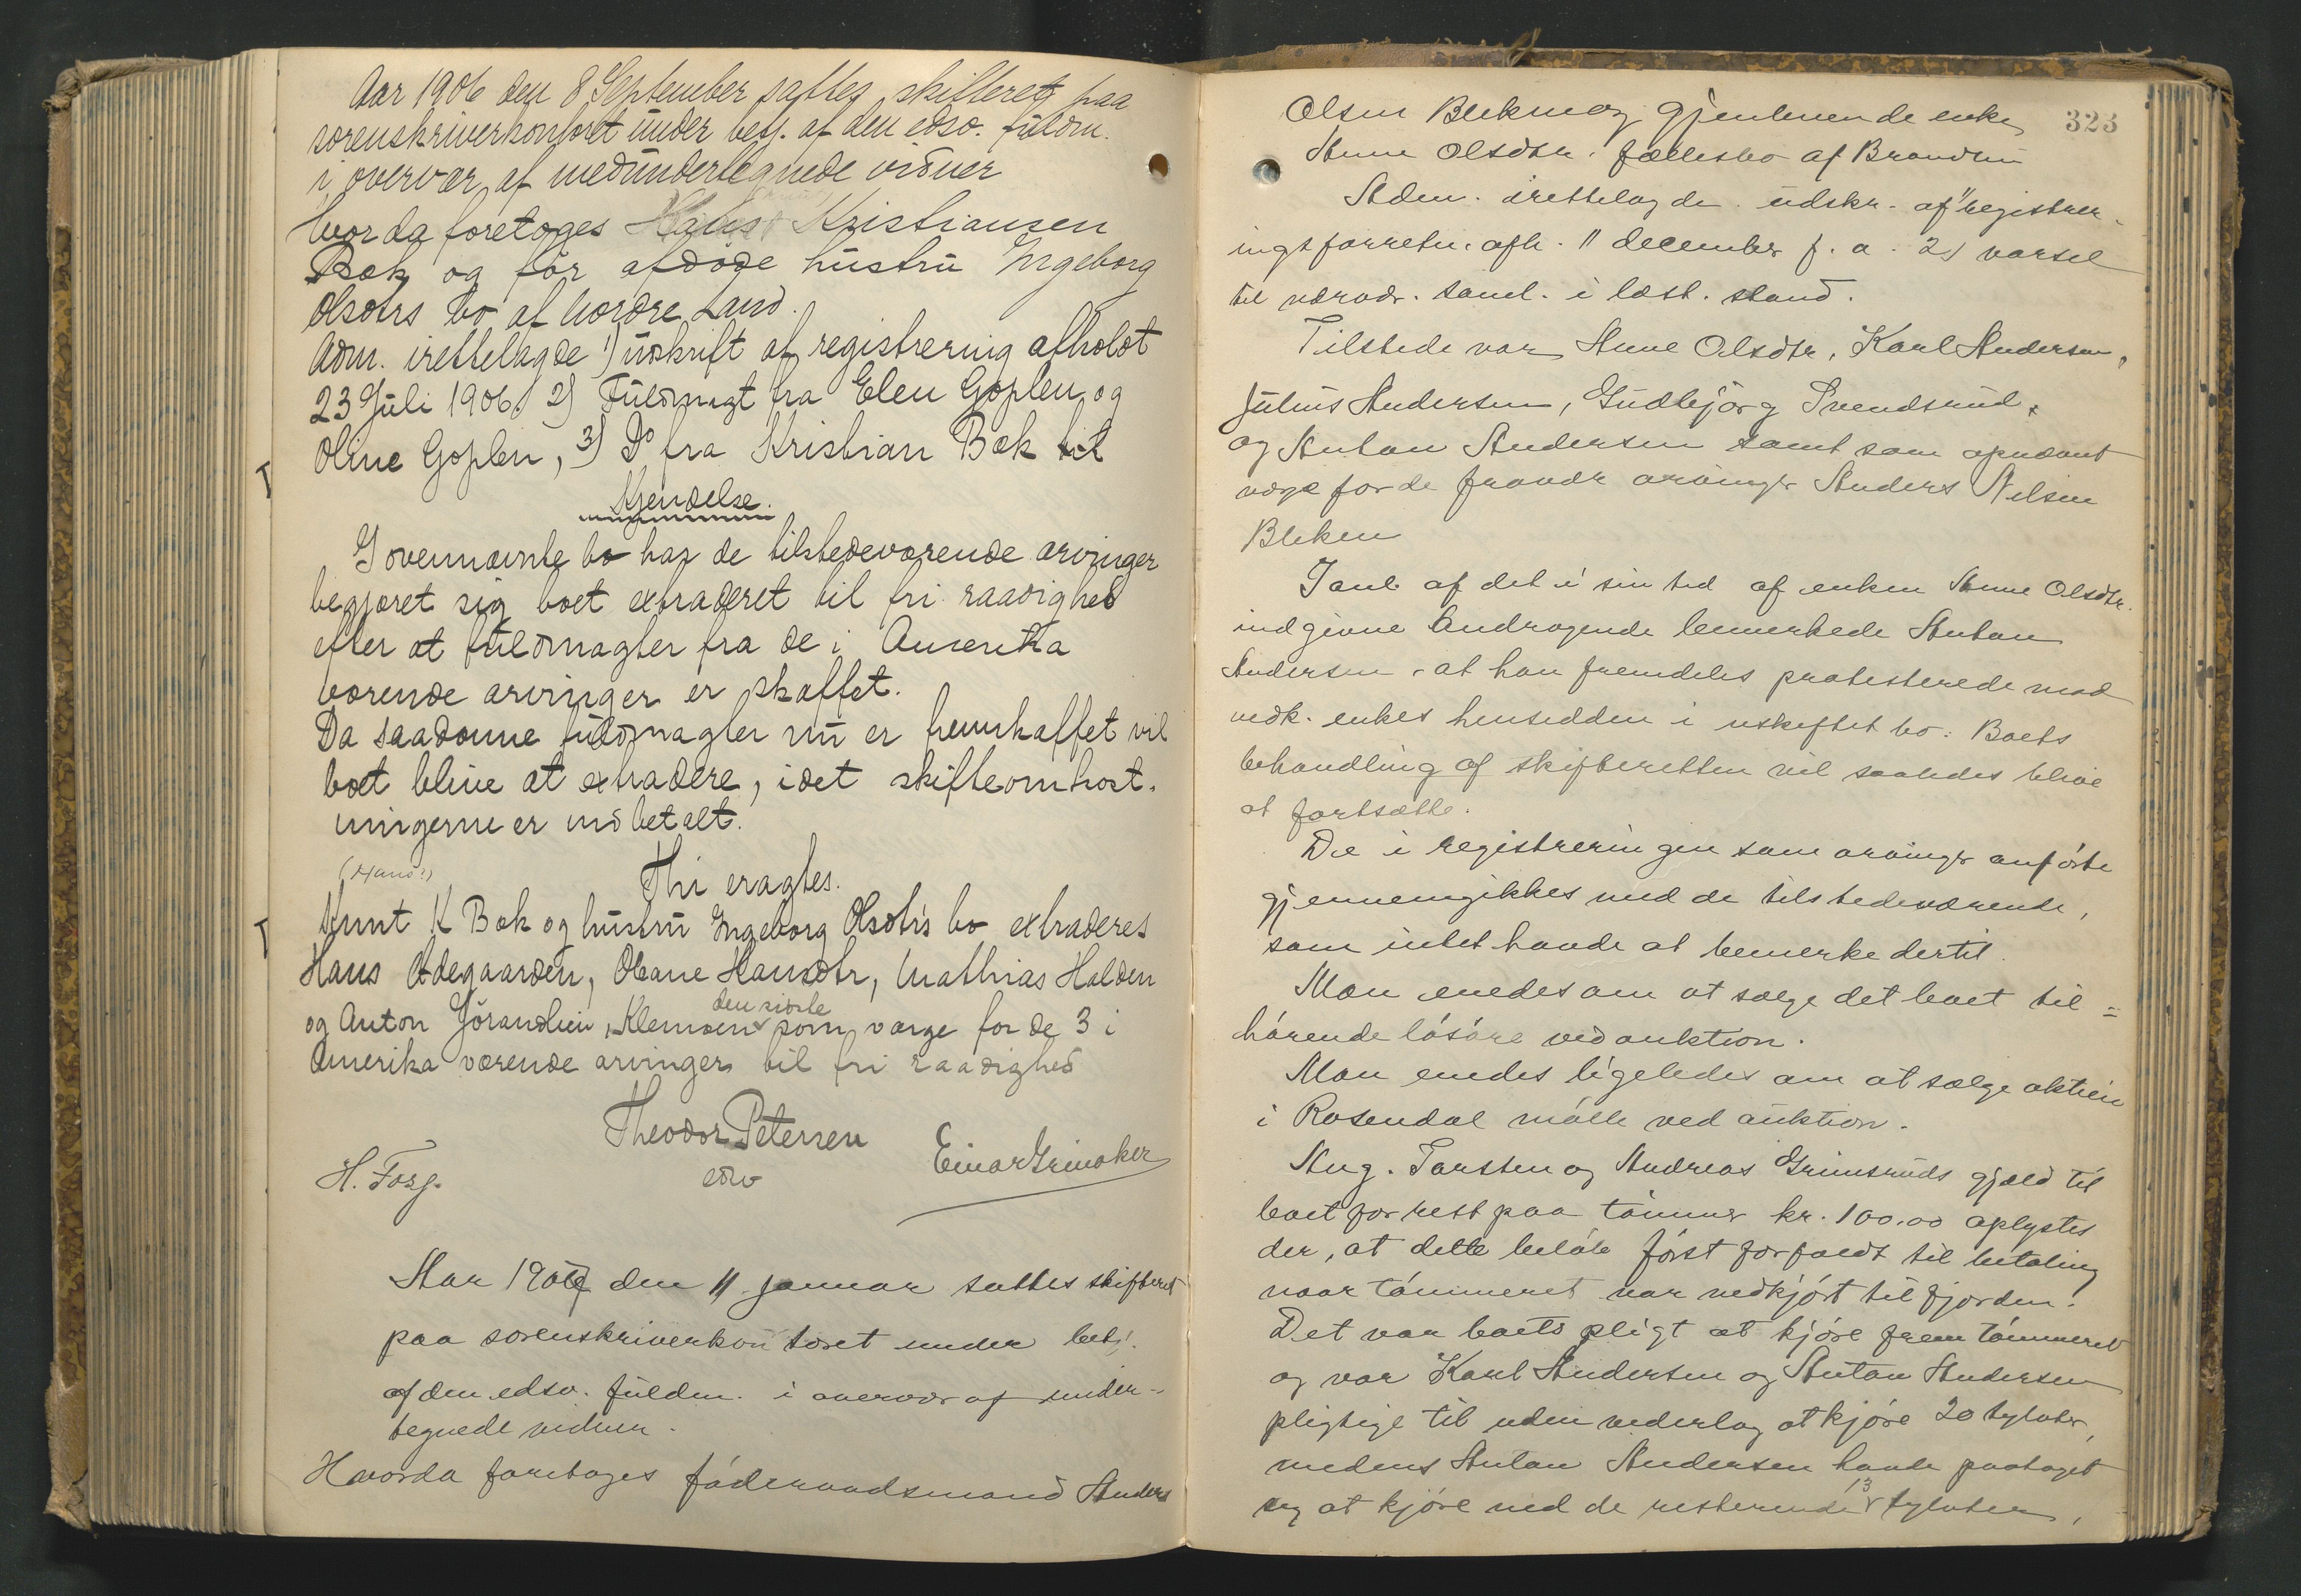 Aar 1906 den 8 September sattes skifteret paa
sorenskriverkontoret under best. af den edsv. fuldm.
i overvær af medundertegnede vidner
hvorda foretoges Hans Kristiansen
Bæk og før afdøde hustru Ingeborg
Olsdtrs bo af Nordre Land.
Adm. irettelagde 1) udskrift af registrering afholdt
23 Juli 1906. 2) Fuldmagt fra Elen Goplen og
Oline Goplen, 3) Do fra Kristian Bæk til
Kjendelse.
I ovennævnte bo har de tilstedeværende arvinger
begjæret sig boet extraderet til fri raadighed
efter at fuldmagter fra de i Amerika
værende arvinger er skaffet.
Da saadanne fuldmagter nu er fremskaffet vil
boet blive at extradere, idet skifteomkost-
ningerne er indbetalt.
(Hans?) Thi eragtes.
Knut K Bæk og hustru Ingeborg Olsdtrs bo extraderes
Hans Ødegaarden, Oliane Hansdtr, Mathias Halden
og Anton Jørandlien, Klemoen den sidste som værge for de 3 i
Amerika værende arvinger til fri raadighed
Theodor Petersen
edsv
H. Forg. Einar Grinaker
Aar 1907 den 11 januar sattes skifteret
paa sorenskriverkontoret under best.
af den edsv. fuldm. i overvær af under-
tegnede vidner.
Hvorda foretoges føderaadsmand Anders
323
Olsen Blekens og gjenlevende enke
Anne Olsdtr. fællesbo af Brandbu
Adm. irettelagde udskr. af registrer-
ingsforretn. afh. 11 december f. a. 2) varsel
til nærvær. saml. i læst. stand.
Tilstede var Anne Olsdtr, Karl Andersen,
Julius Andersen, Gudbjørg Svendsrud,
og Anton Andersen samt som opnævnt
værge for de fravær arvinger Anders Nilsen
Bleken
I anl. af det i sin tid af enken Anne Olsdtr.
indgivne andragende bemerkede Anton
Andersen, at han fremdeles protesterede mod
vedk. enkes hensidden i uskiftet bo. Boets
behandling af skifteretten vil saaledes blive
at fortsætte.
De i registreringen som arvinger anførte
gjennemgikkes med de tilstedeværende,
som intet havde at bemerke dertil.
Man enedes om at sælge det boet til=
hørende løsøre ved auktion.
Man enedes ligeledes om at sælge aktien
i Rosendal mølle ved auktion.
Ang. Torsten og Andreas Grimsruds gjæld til
boet for rest paa tømmer kr. 100.00 oplystes
der, at dette beløb først forfaldt til betaling
naar tømmeret var nedkjørt til fjorden.
Det var boets pligt at kjøre frem tømmeret
og var Karl Andersen og Anton Andersen
pligtige til uden vederlag at kjøre 20 tylvter,
medens Anton Andersen havde paataget
sig at kjøre ned de resterende 13 tylvter,